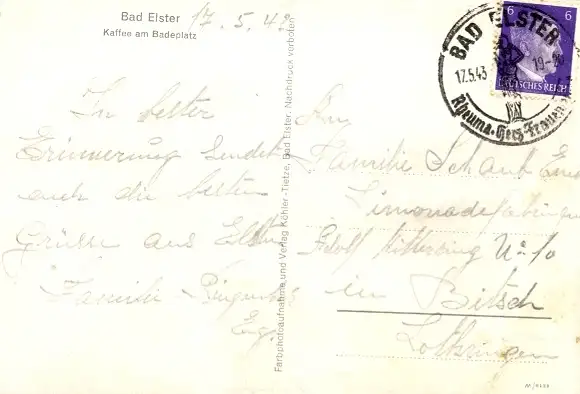 Bad Elster
Kaffee am Badeplatz
17. 5. 43
In bester
Erinnerung sendet
euch die besten
Grüsse aus Elster
Familie
Farbphotoaufnahme und Verlag Köhler-Tietze, Bad Elster. Nachdruck verboten
BAD ELSTER
17.5.43
19-
Rheuma-Herz-Frauen
6 6
DEUTSCHES REICH
An
Familie Schaub
Limonadefabrik
Adolf Hitlerring No 10
in Bitsch
Lothringen